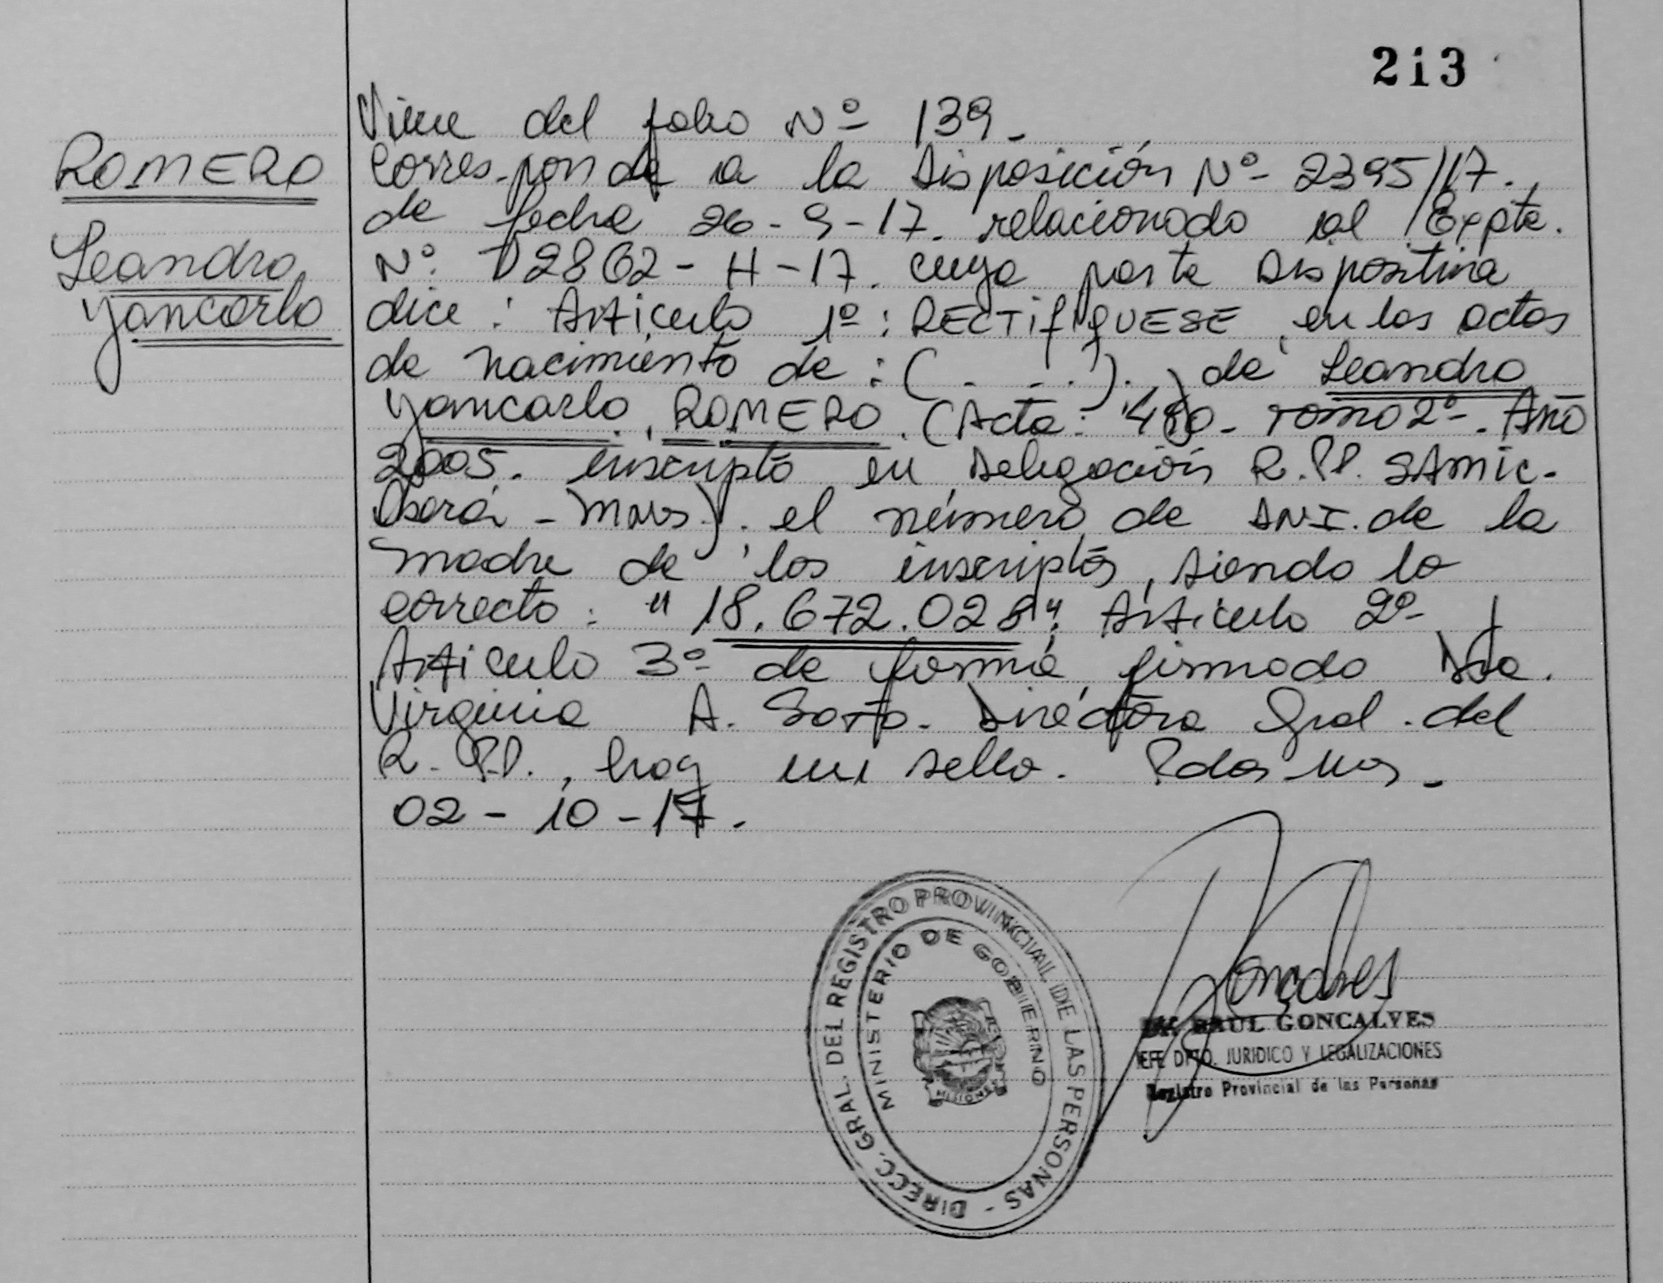 213
ROMERO
Leandro,
Yancarlo
Viene del folio Nº 139.
Corresponde a la Disposición Nº 2395/17.,
de fecha 26-9-17. relacionado al Expte.
Nº. D2862-H-17. cuya parte Dispositiva
dice: Artículo 1º: RECTIFIQUESE, en las actas
de nacimiento de: (. . . .). y de Leandro
Yancarlo, ROMERO. (Acta: 480. TOMO 2º. Año
2005. inscripto en Delegación R.PP. SAMIC-
Oberá - Mnes). el número de DNI. de la
madre de los inscriptos, siendo lo
correcto: "18.672.028". Artículo 2º y
Artículo 3º de forma, firmado Dra.
Virginia A. Soto. Directora Gral. del
R.PP., hay un sello. Pdas Mnes.
02-10-17.
DIRECC. GRAL. DEL REGISTRO PROVINCIAL DE LAS PERSONAS -
MINISTERIO DE GOBIERNO
MISIONES
Goncalves
RAUL GONCALVES
JEFE DPTO. JURIDICO Y LEGALIZACIONES
Registro Provincial de las Personas